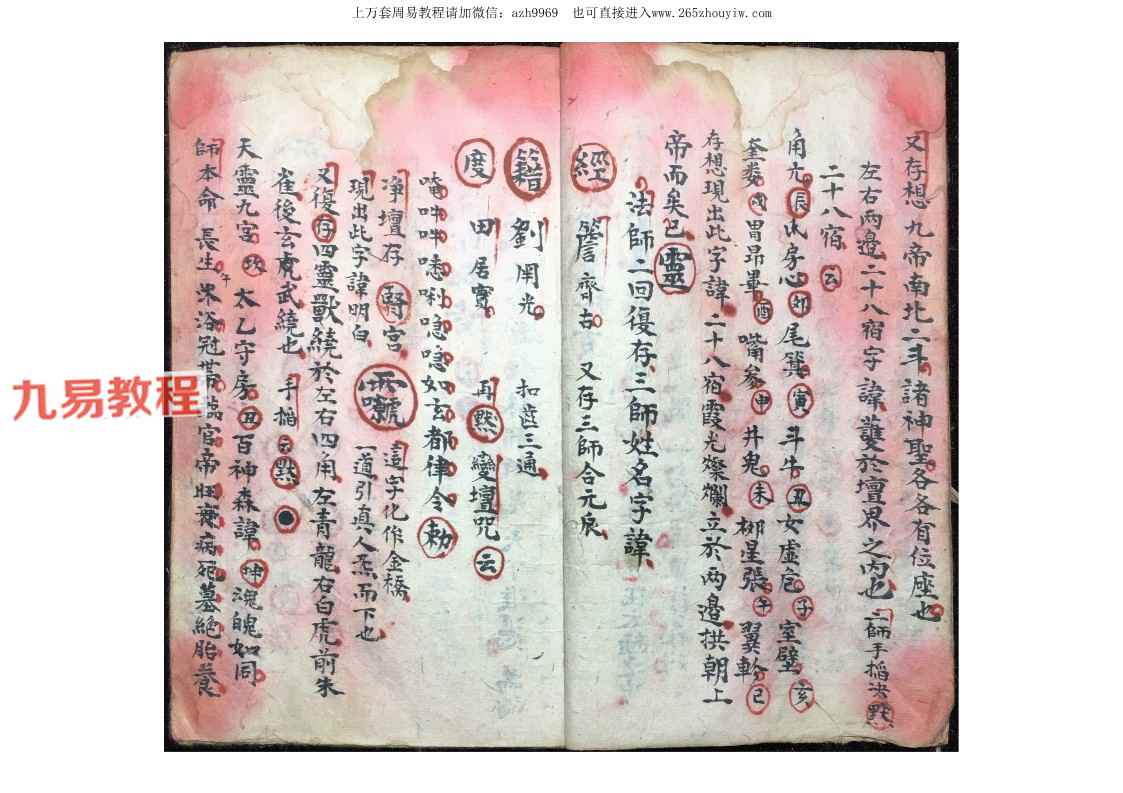 上万套周易教程请加微信：azh9969　也可直接进入www.265zhouyiw.com
又存想九帝南北二斗諸神聖各各有位座也
左右两邉二十八宿字諱護於壇界之内也 二師手掐决黙
二十八宿 云
角亢辰氐房心卯尾箕寅斗牛丑女虚危子室壁亥
奎婁戌胃昴畢酉嘴參申井鬼未柳星張午翼軫巳
存想現出此字諱二十八宿霞光燦爛立於两邊拱朝上
帝而矣已靈
法師二回復存三師姓名字諱
經 詹齊古 又存三師合元辰
籍 劉開光 扣齒三通
度 田居寳 再黙變壇咒云
唵吽吽 如玄都律令勅
净壇存 宫 這字化作金橋
現出此字諱明白 一道引真人 而下也
又復存四靈獸繞於左右四角左青龍右白虎前朱
雀後玄虎武繞也 手掐云黙
天靈九宫坎太乙守房丑百神森諱坤魂魄如同
師本命長生 午 沐浴冠带臨官帝旺衰病死墓絶胎養
九易教程